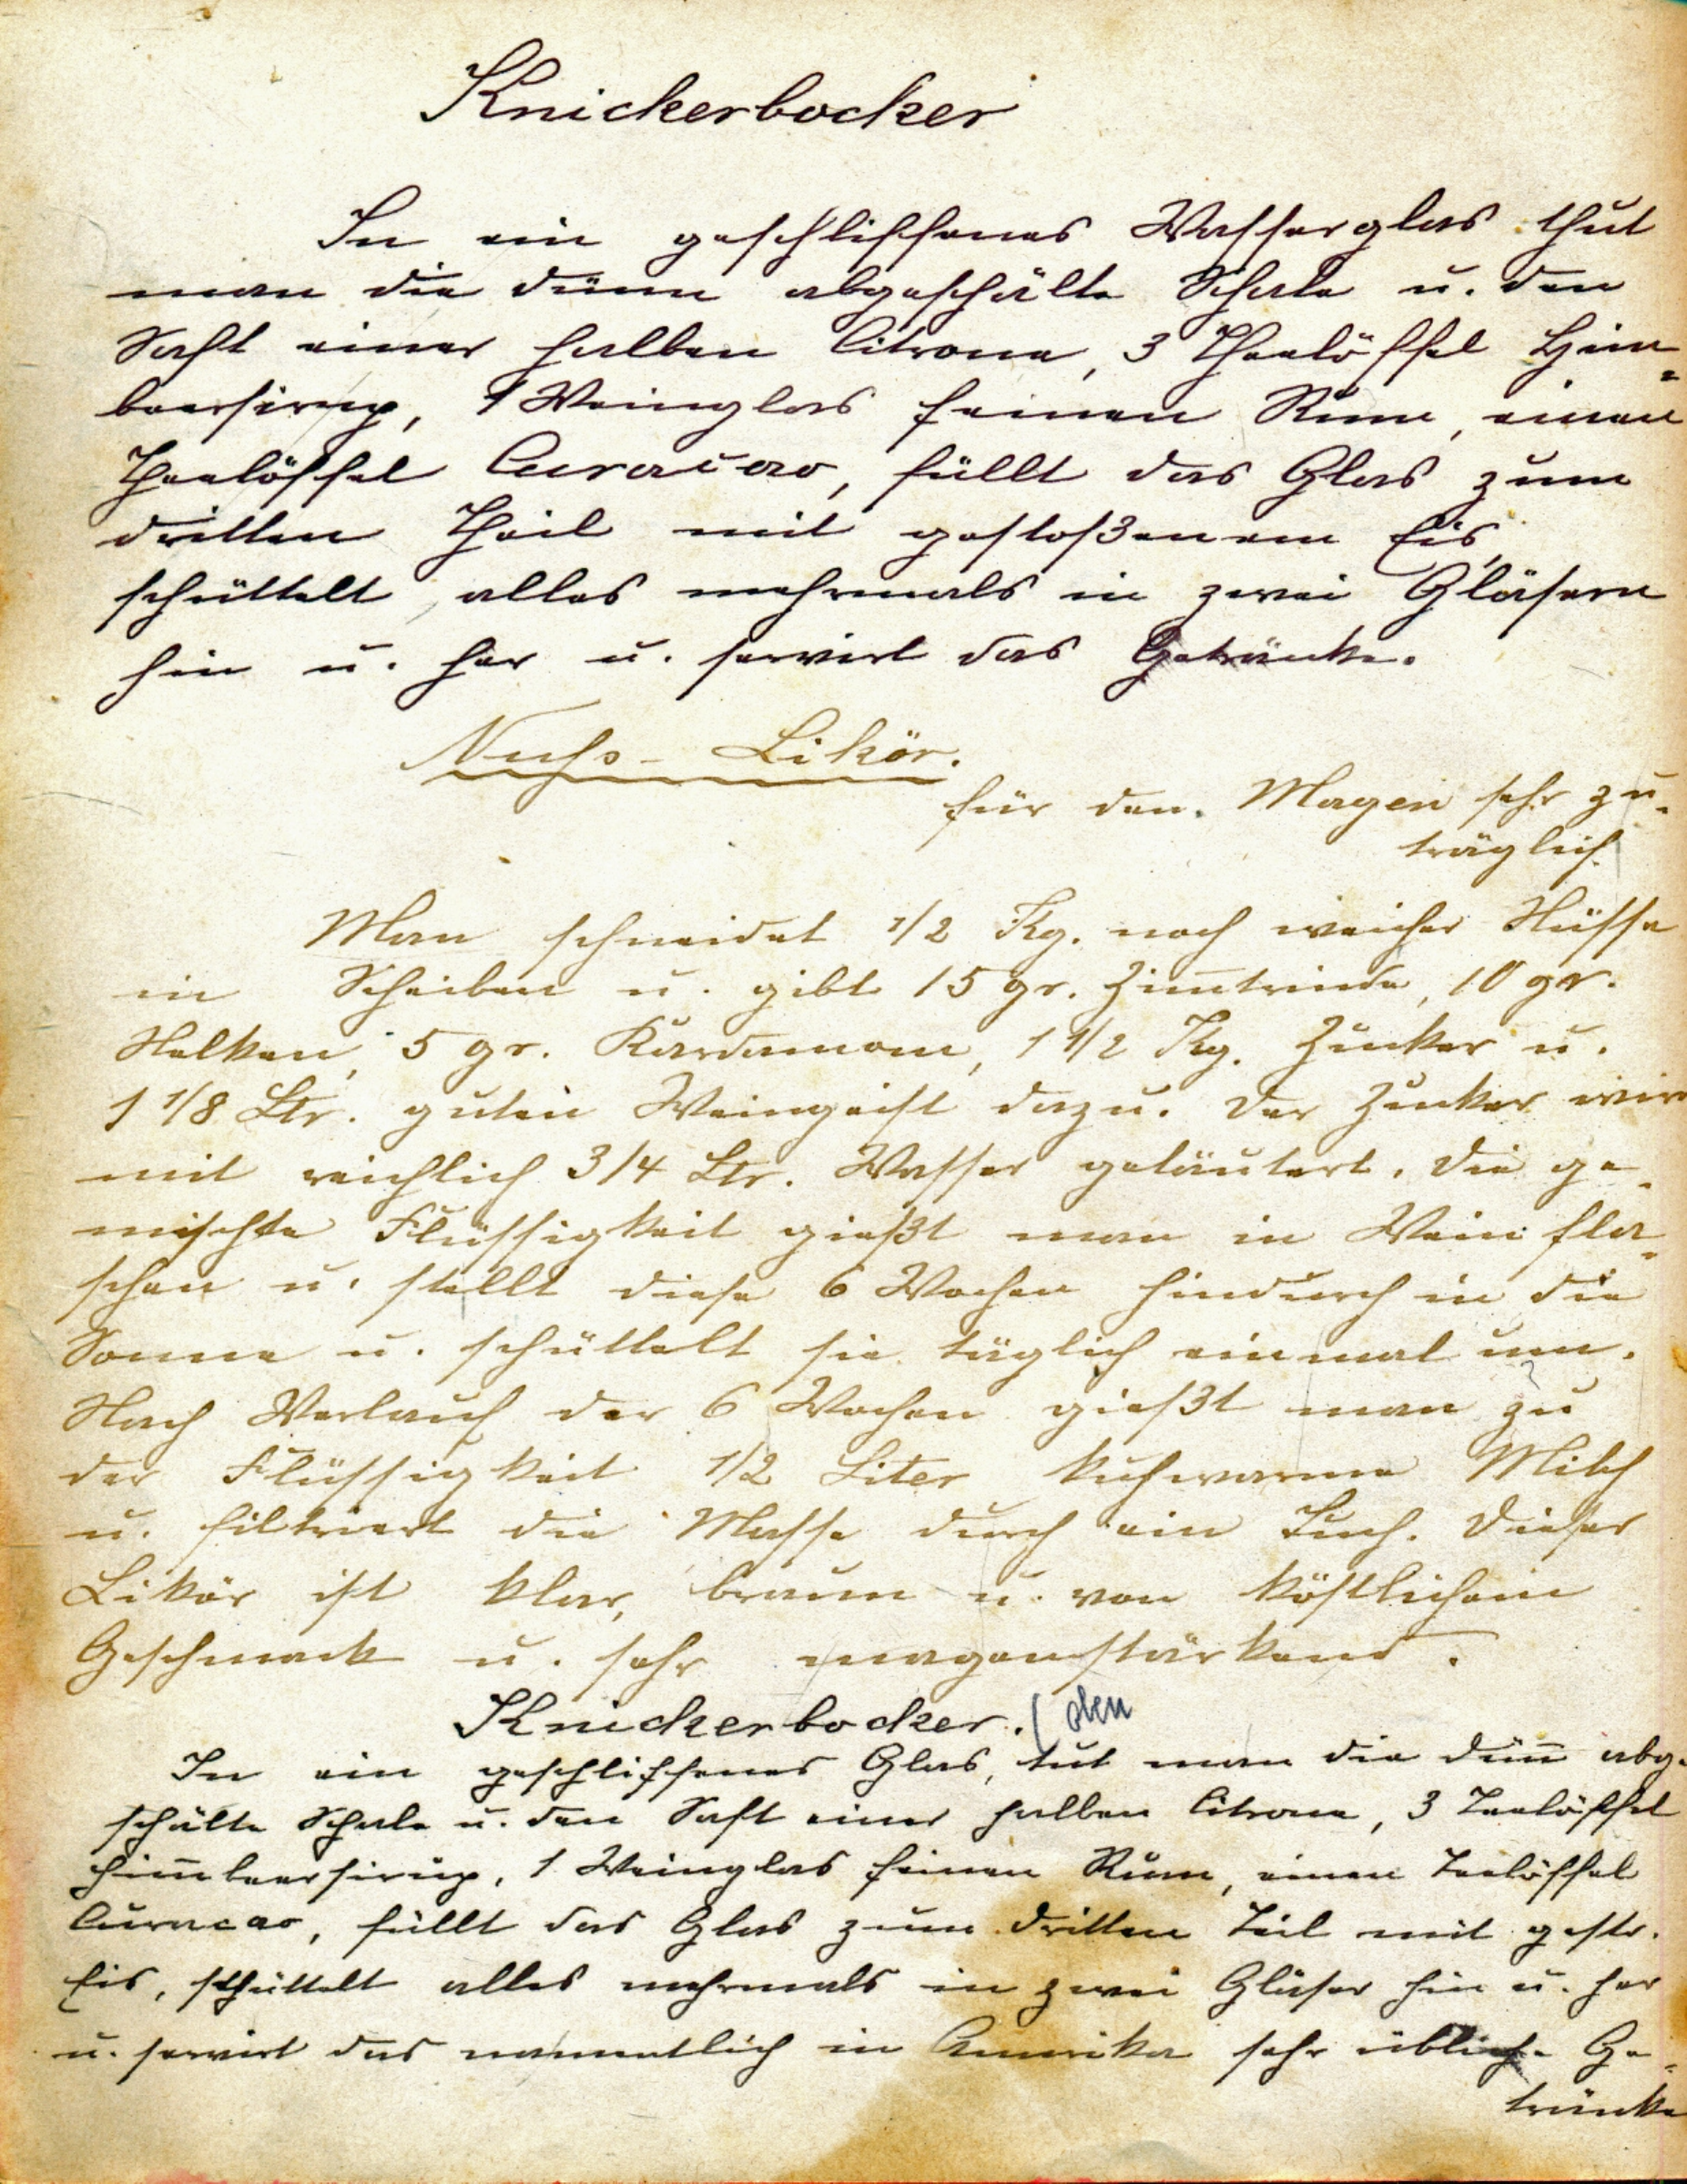 Knickerbocker
In ein geschliffenes Wasserglas thut
man die dünn abgeschälte Schale u. den
Saft einer halben Citrone, 3 Theelöffel Him-
beersirup, 1 Weinglas feinen Rum, einen
Theelöffel Curacao, füllt das Glas zum
dritten Theil mit gestoßenem Eis,
schüttelt alles mehrmals in zwei Gläsern
hin u. her u. servirt das Getränke.
Nuss-Likör.
für den Magen sehr zu-
träglich.
Man schneidet 1/2 Kg. noch weicher Nüsse
in Scheiben u. gibt 15 gr. Zim̅trinde, 10 gr.
Nelken, 5 gr. Kardamom, 1 1/2 Kg. Zucker u.
1 1/8 Ltr. guten Weingeist dazu. Der Zucker wird
mit reichlich 3/4 Ltr. Wasser geläutert. Die ge-
mischte Flüssigkeit gießt man in Weinfla-
schen u. stellt diese 6 Wochen hindurch in die
Sonne u. schüttelt sie täglich einmal um.
Nach Verlauf der 6 Wochen gießt man zu
der Flüssigkeit 1/2 Liter kuhwarme Milch
u. filtriert die Masse durch ein Tuch. Dieser
Likör ist klar, braun u. von köstlichem
Geschmack u. sehr magenstärkend.
Knickerbocker. (oben
In ein geschliffenes Glas, tut man die dün̅ abge-
schälte Schale u. den Saft einer halben Citrone, 3 Teelöffel
Him̅beersirup, 1 Weinglas feinen Rum, einen Teelöffel
Curacao, füllt das Glas zum dritten Teil mit gesto.
Eis, schüttelt alles mehrmals in zwei Gläser hin u. her
u. servirt das namentlich in Amerika sehr übliche Ge-
tränke